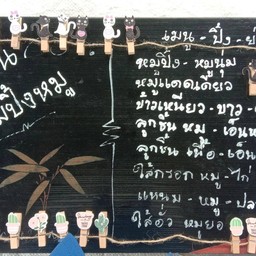 มปิ้งหมู
เมนู - ปิ้ง - ย่
หมูปิ้ง - หมูนุ่ม
หมูแดดเดียว
ข้าวเหนียว - ขาว -
ลูกชิ้น หมู - เอ็นห
ลูกชิ้น เนื้อ - เอ็น
ไส้กรอก หมู - ไก่
แหนม - หมู - ปล
ไส้อั่ว หมูยอ